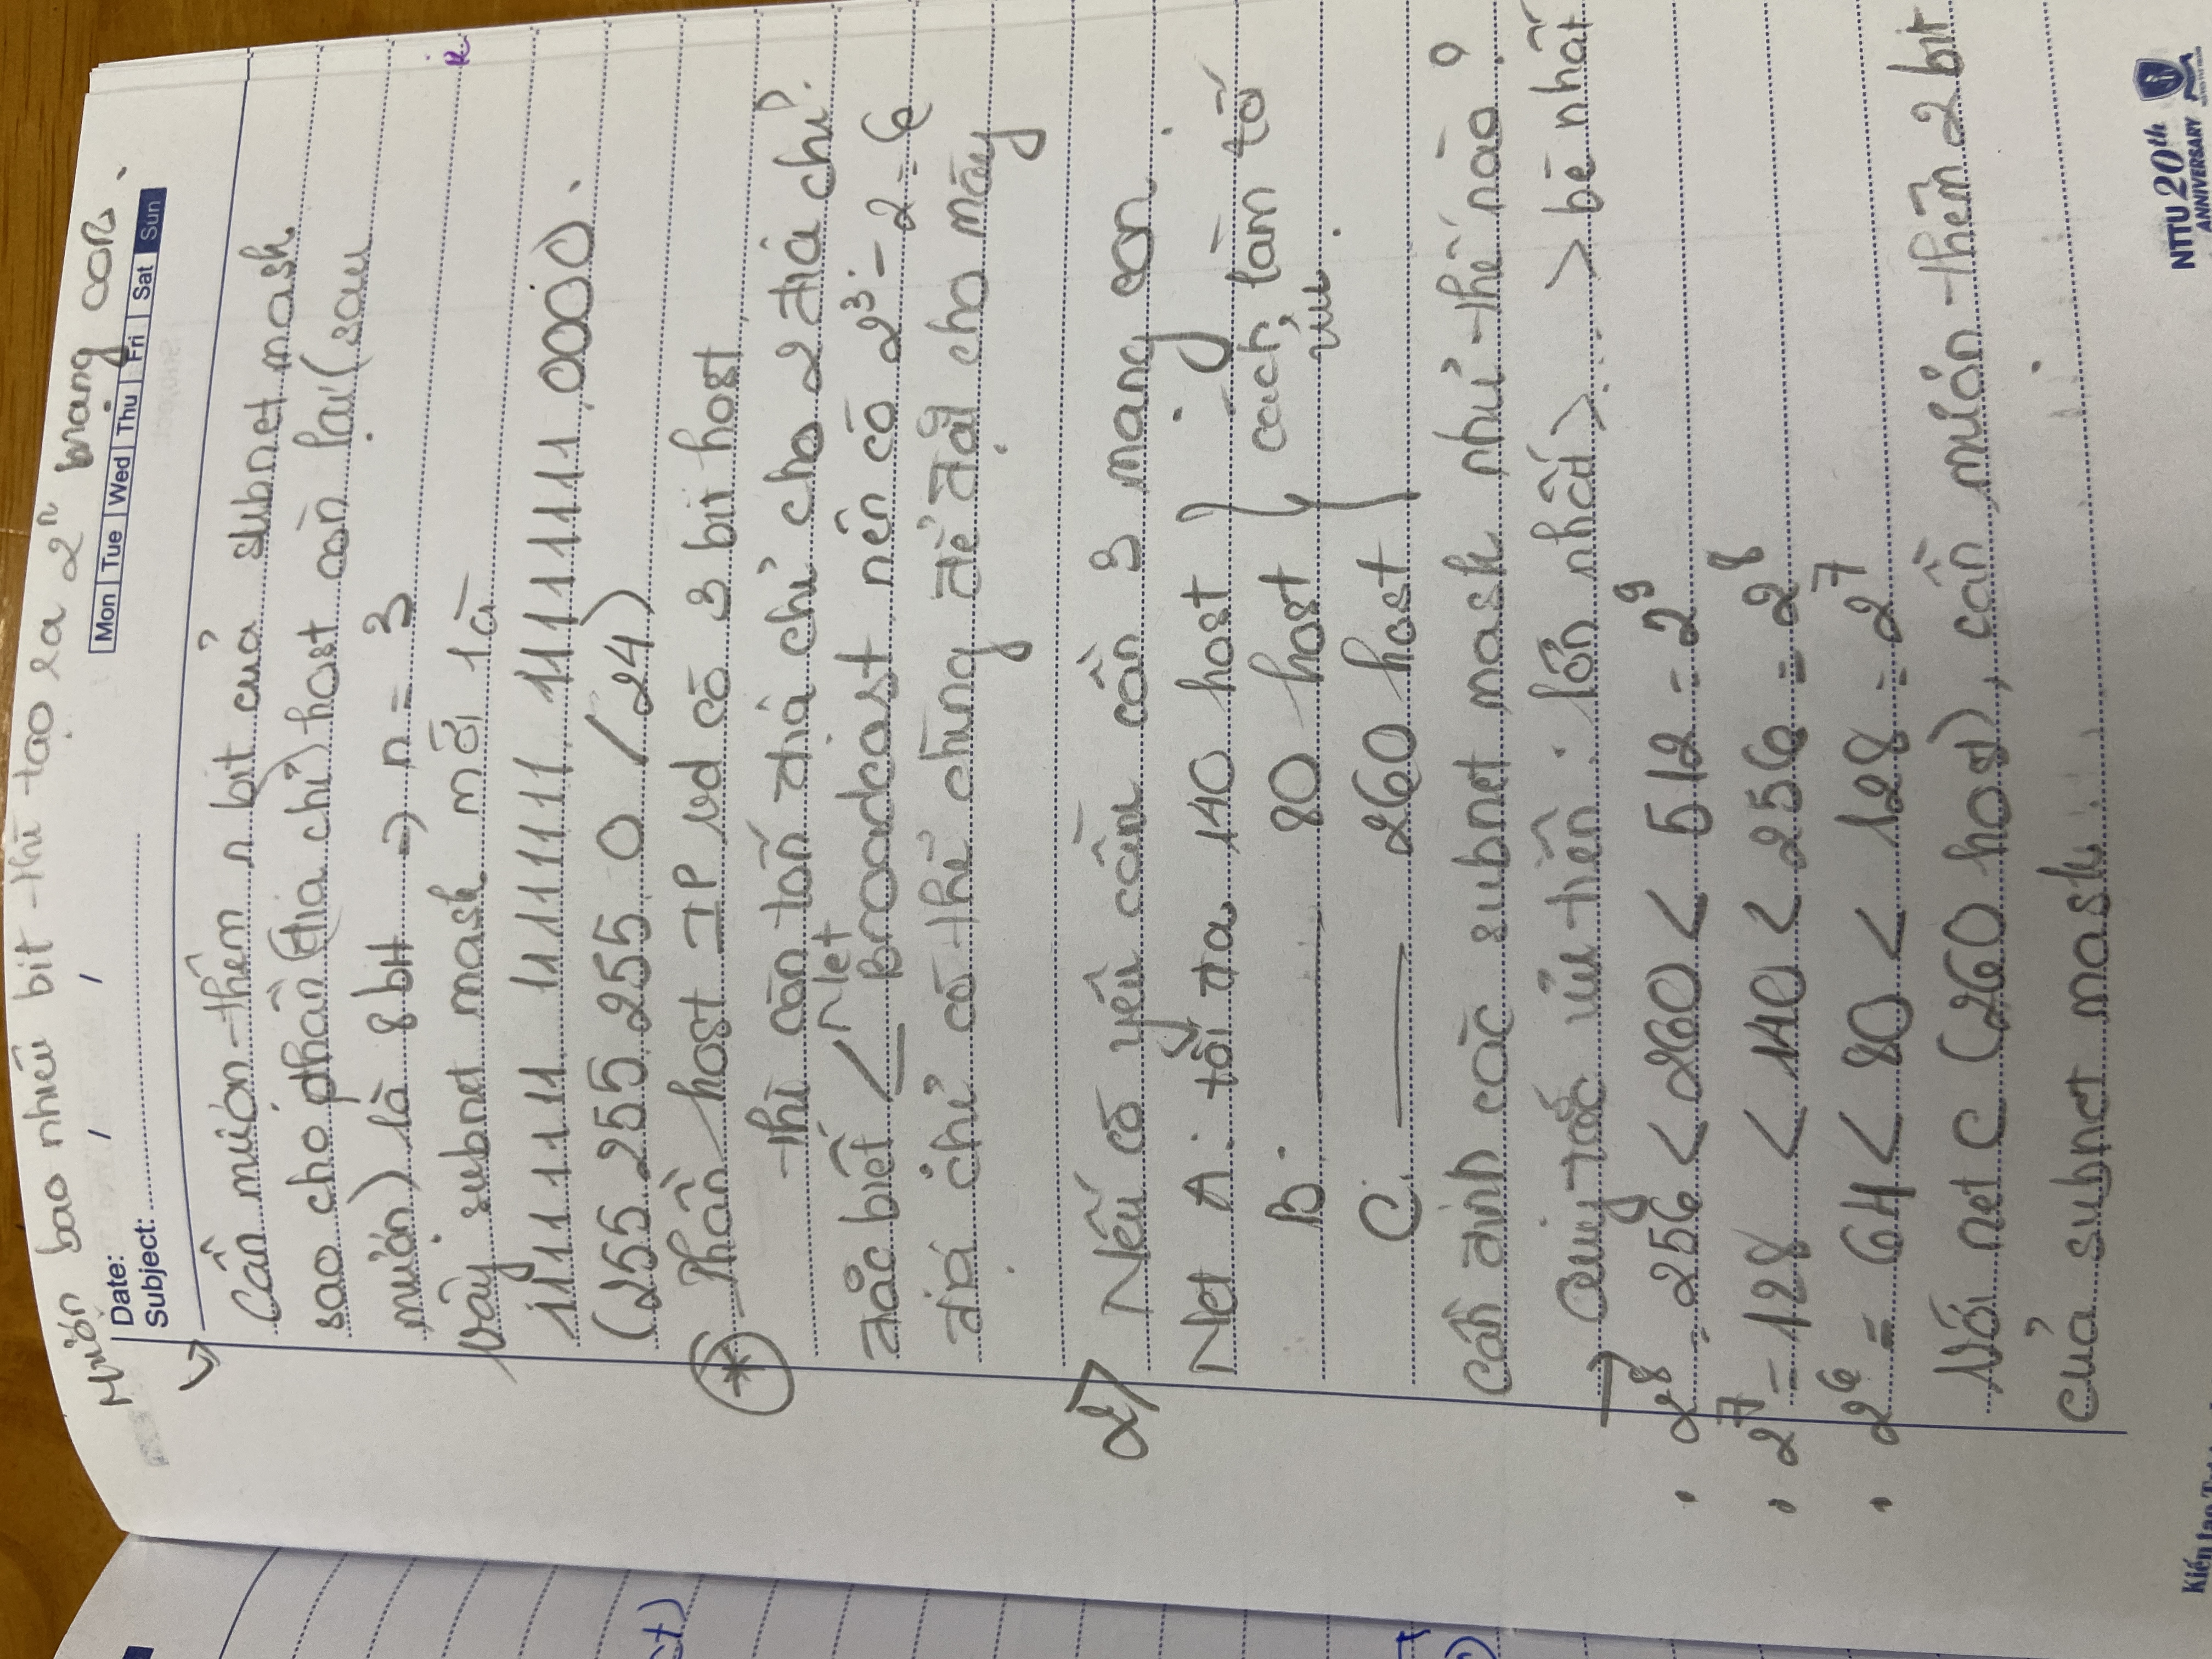 Mượn bao nhiêu bit thì tạo ra 2ⁿ mạng con.
Date: / /
Mon Tue Wed Thu Fri Sat Sun
Subject:
↳
Cần mượn thêm n bit của subnet mask
sao cho phần (địa chỉ) host còn lại (sau
mượn) là 8 bit => n = 3
Vậy subnet mask mới là
11111111. 11111111. 11111111.0000.
(255.255.255.0 /24)
* Phần host IP vd có 3 bit host,
thì cần tốn địa chỉ cho 2 địa chỉ
đặc biệt < Net
Broadcast nên có 2³ - 2 = 6
địa chỉ có thể dùng để đặt cho máy
2> Nếu có yêu cầu cần 3 mạng con
Net A: tối đa 140 host
B: —— 80 host
C: —— 260 host
} cách làm tối
ưu.
Cần định các subnet mask như thế nào?
→ Quy tắc ưu tiên: lớn nhất > .... > bé nhất
. 2⁸ = 256 < 260 < 512 = 2⁹
. 2⁷ = 128 < 140 < 256 = 2⁸
. 2⁶ = 64 < 80 < 128 = 2⁷
Với net C (260 host), cần mượn thêm 2 bit
của subnet mask
NTTU 20th
ANNIVERSARY
Kiến tạo